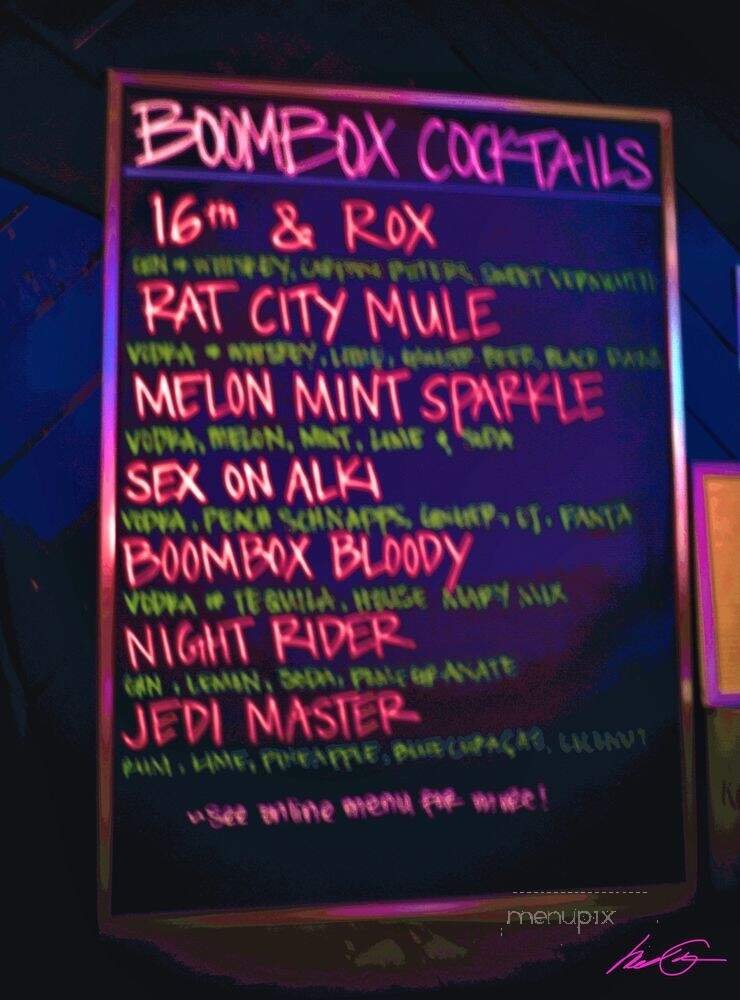 BOOMBOX COCKTAILS
16TH & ROX
GIN & WHISKEY, SWEET VERMOUTH
RAT CITY MULE
VODKA WHISKEY, LIME, GINGER BEER,
MELON MINT SPARKLE
VODKA, MELON, MINT, LIME & SODA
SEX ON ALKI
VODKA, PEACH SCHNAPPS, FANTA
BOOMBOX BLOODY
VODKA OR TEQUILA, HOUSE MARY MIX
NIGHT RIDER
GIN, LEMON, SODA, POMEGRANATE
JEDI MASTER
RUM, LIME, PINEAPPLE, BLUE CURAÇAO, COCONUT
~See online menu for more!
menupix